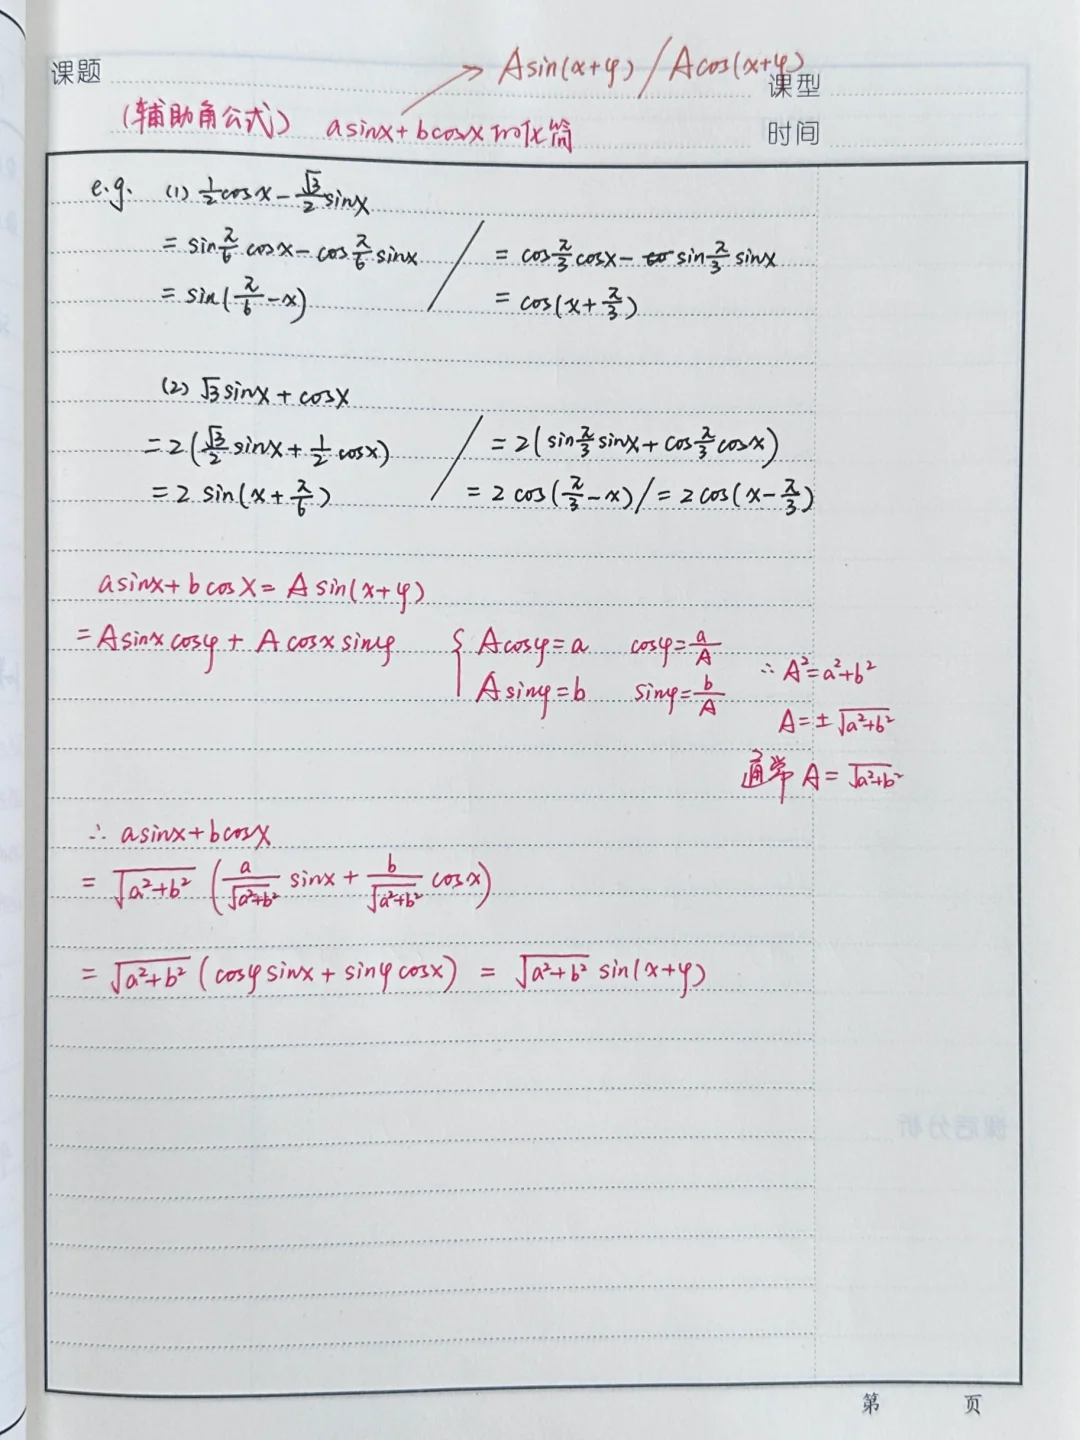 课题 → Asin(x+φ) / Acos(x+φ)
课型
(辅助角公式) asinx+bcosx的化简
时间
e.g. (1) 1/2 cosx - √3/2 sinx
= sin π/6 cosx - cos π/6 sinx / = cos π/3 cosx - sin π/3 sinx
= sin(π/6 - x) / = cos(x + π/3)
(2) √3 sinx + cosx
= 2(√3/2 sinx + 1/2 cosx) / = 2(sin π/3 sinx + cos π/3 cosx)
= 2 sin(x + π/6) / = 2 cos(π/3 - x) / = 2 cos(x - π/3)
asinx + bcosx = A sin(x+φ)
= Asinx cosφ + A cosx sinφ { Acosφ = a cosφ = a/A
Asinφ = b sinφ = b/A
∴ A² = a²+b²
A = ± √(a²+b²)
通常 A = √(a²+b²)
∴ asinx + bcosx
= √(a²+b²) (a/√(a²+b²) sinx + b/√(a²+b²) cosx)
= √(a²+b²) (cosφ sinx + sinφ cosx) = √(a²+b²) sin(x+φ)
课后分析
第 页